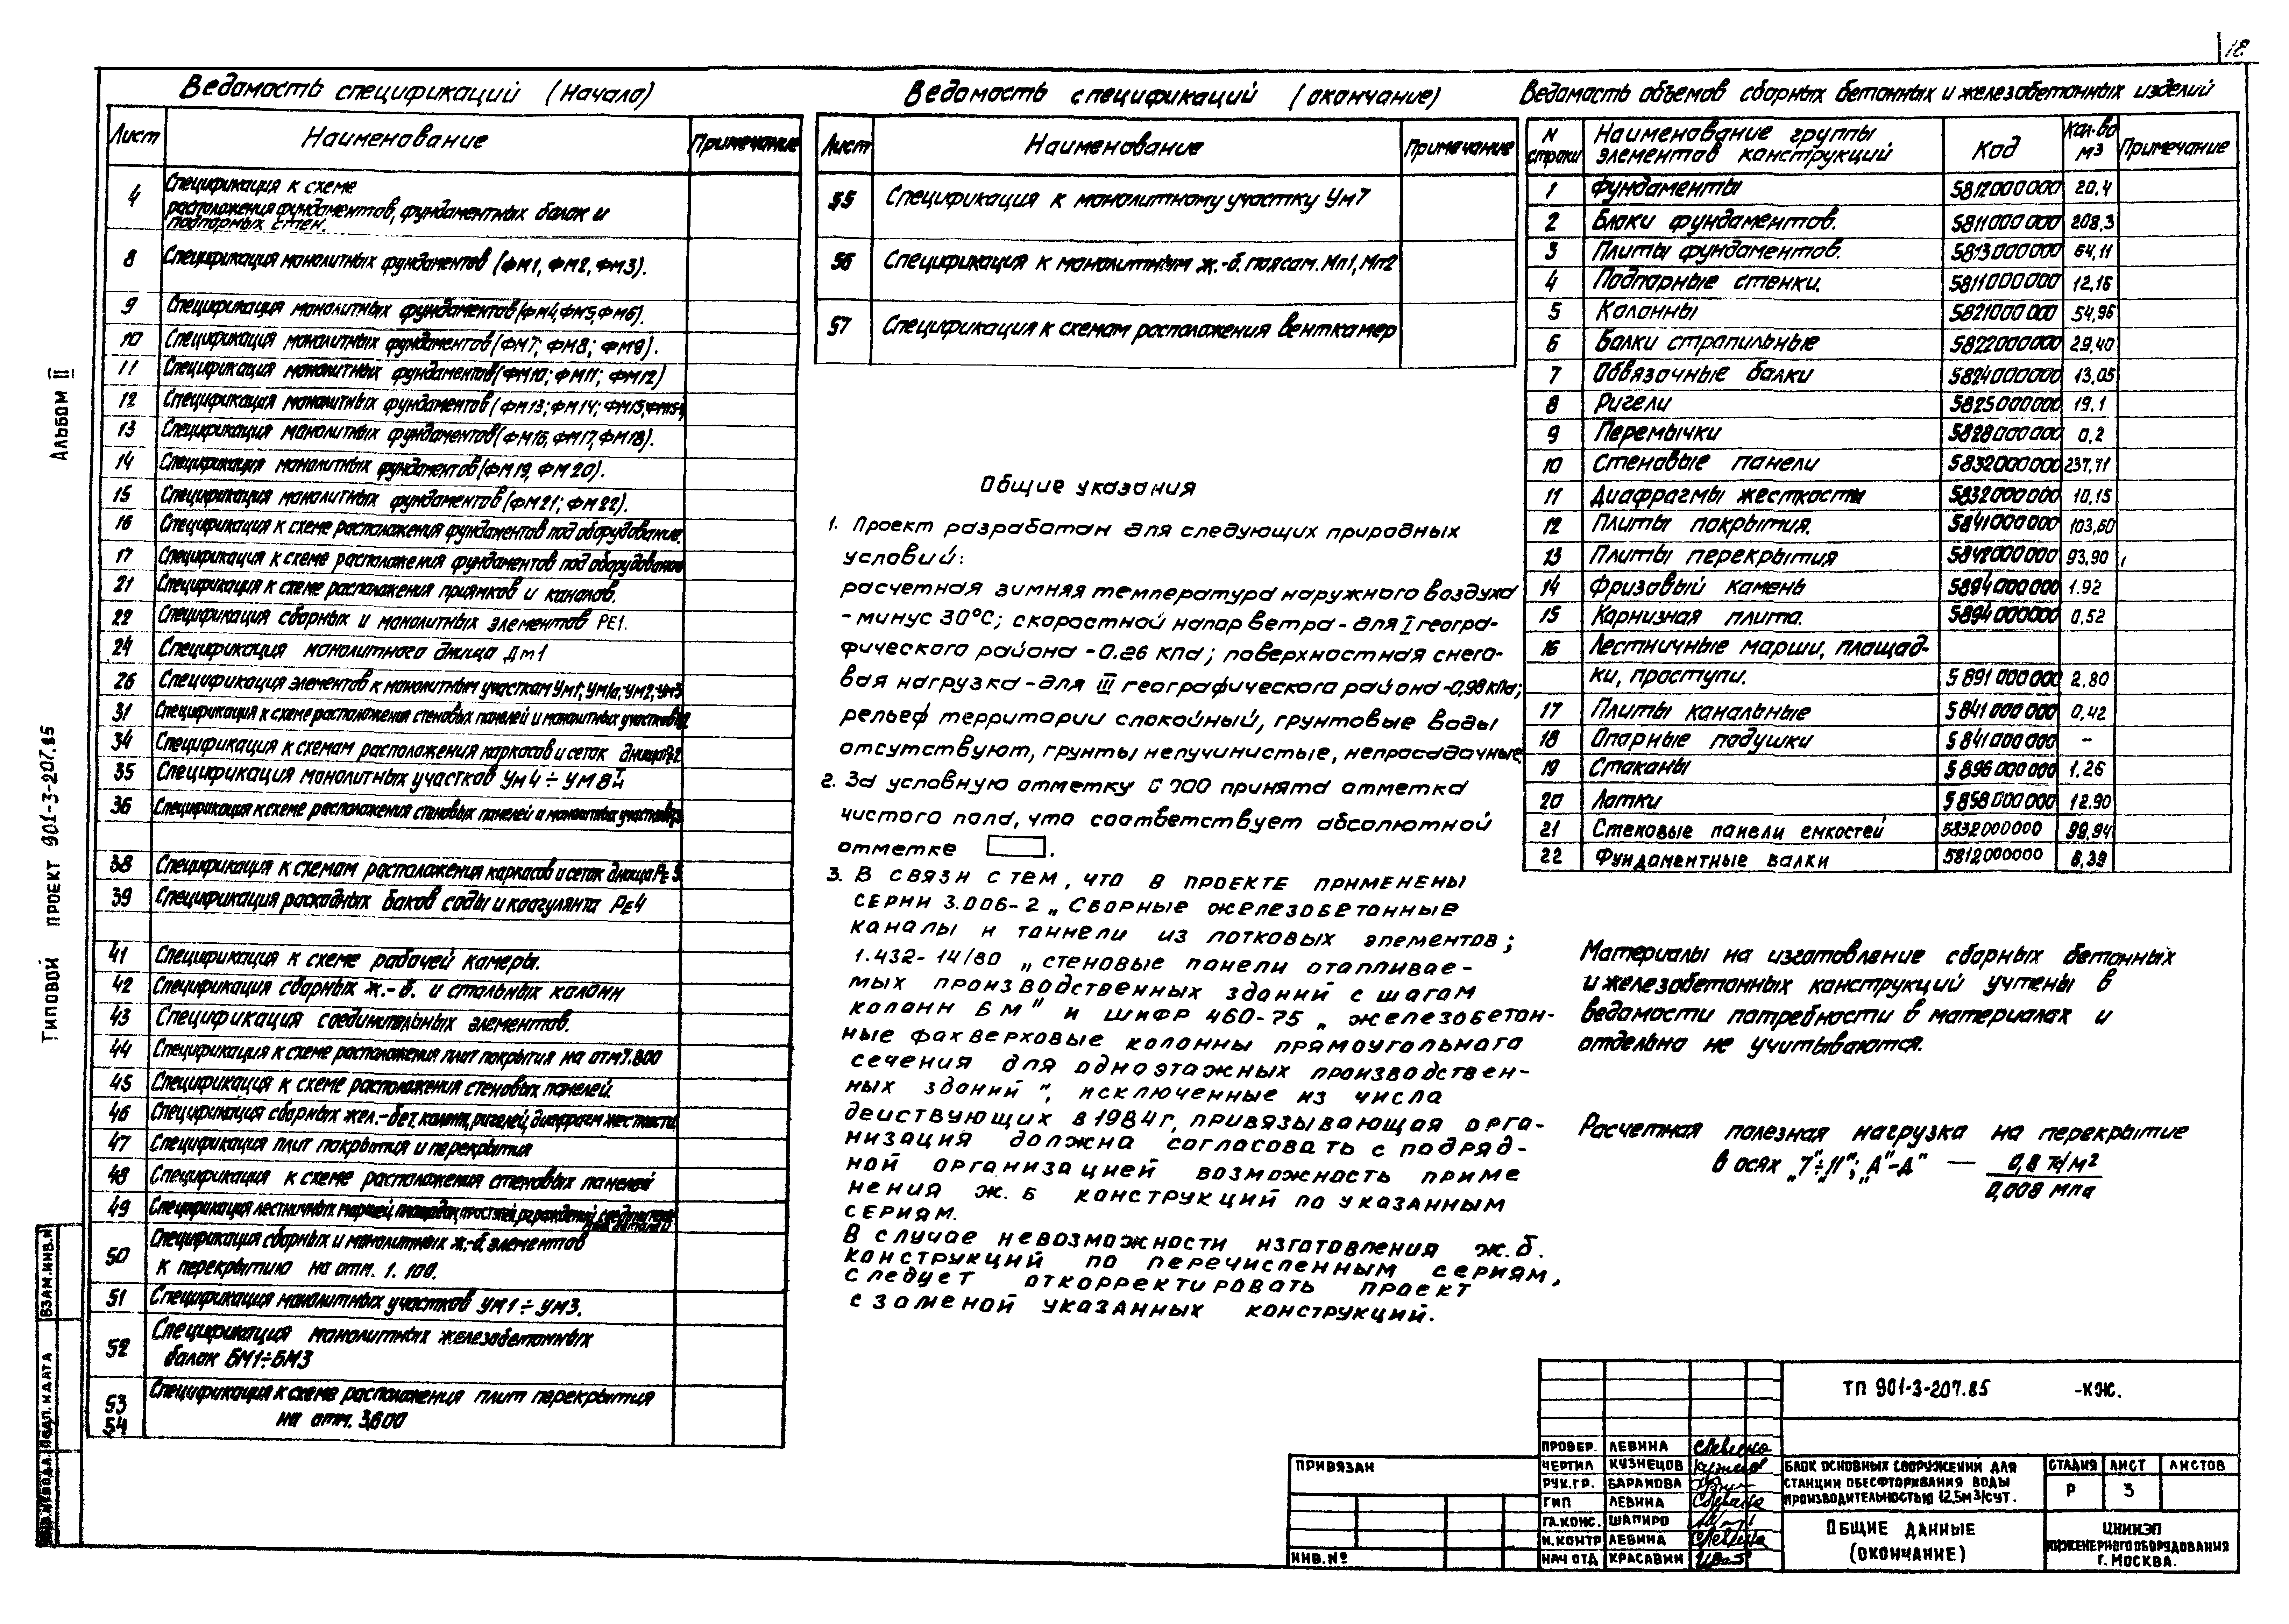 18
Ведомость спецификаций (начало)
Лист Наименование Примечание
4 Спецификация к схеме
расположения фундаментов, фундаментных балок и
подпорных стен.
8 Спецификация монолитных фундаментов (ФМ1, ФМ2, ФМ3).
9 Спецификация монолитных фундаментов (ФМ4, ФМ5, ФМ6).
10 Спецификация монолитных фундаментов (ФМ7; ФМ8; ФМ9).
11 Спецификация монолитных фундаментов (ФМ10; ФМ11; ФМ12)
12 Спецификация монолитных фундаментов (ФМ13; ФМ14; ФМ15,
13 Спецификация монолитных фундаментов (ФМ16, ФМ17, ФМ18).
14 Спецификация монолитных фундаментов (ФМ19, ФМ20).
15 Спецификация монолитных фундаментов (ФМ21; ФМ22).
16 Спецификация к схеме расположения фундаментов под оборудование.
17 Спецификация к схеме расположения фундаментов под оборудование
21 Спецификация к схеме расположения приямков и каналов.
22 Спецификация сборных и монолитных элементов РЕ1.
24 Спецификация монолитного днища Дм1
26 Спецификация элементов к монолитным участкам Ум1; Ум1а; Ум2; Ум3
31 Спецификация к схеме расположения стеновых панелей и монолитных участков
34 Спецификация к схемам расположения каркасов и сеток днища РЕ2
35 Спецификация монолитных участков Ум4 ÷ УМ8
36 Спецификация к схеме расположения стеновых панелей и монолитных участков
38 Спецификация к схемам расположения каркасов и сеток днища РЕ3
39 Спецификация расходных баков соды и коагулянта РЕ4
41 Спецификация к схеме рабочей камеры.
42 Спецификация сборных ж.-б. и стальных колонн
43 Спецификация соединительных элементов.
44 Спецификация к схеме расположения плит покрытия на отм 7.800
45 Спецификация к схеме расположения стеновых панелей.
46 Спецификация сборных жел.-бет. колонн, ригелей, диафрагм жесткости
47 Спецификация плит покрытия и перекрытия
48 Спецификация к схеме расположения стеновых панелей
49 Спецификация лестничных маршей, площадок, проступей, ограждений,
50 Спецификация сборных и монолитных ж.-б. элементов
к перекрытию на отм. 1.100.
51 Спецификация монолитных участков УМ1 ÷ УМ3.
52 Спецификация монолитных железобетонных
балок БМ1÷БМ3
53 54 Спецификация к схеме расположения плит перекрытия
на отм. 3,600
Ведомость спецификаций (окончание)
Лист Наименование Примечание
55 Спецификация к монолитному участку Ум7
56 Спецификация к монолитным ж.-б. поясам. Мп1, Мп2
57 Спецификация к схемам расположения венткамер
Общие указания
1. Проект разработан для следующих природных
условий:
расчетная зимняя температура наружного воздуха
- минус 30°С; скоростной напор ветра - для I геогра-
фического района - 0.26 кПа; поверхностная снего-
вая нагрузка - для III географического района - 0,98 кПа;
рельеф территории спокойный, грунтовые воды
отсутствуют, грунты непучинистые, непросадочные
2. За условную отметку 0 000 принята отметка
чистого пола, что соответствует абсолютной
отметке .
3. В связи с тем, что в проекте применены
серии 3.006-2 „Сборные железобетонные
каналы и таннели из лотковых элементов;
1.432-14/80 „стеновые панели отапливае-
мых производственных зданий с шагом
колонн 6 м" и шифр 460-75 „железобетон-
ные фахверковые колонны прямоугольного
сечения для одноэтажных производствен-
ных зданий", исключенные из числа
действующих в 1984г, привязывающая орга-
низация должна согласовать с подряд-
ной организацией возможность приме
нения ж. б конструкций по указанным
сериям.
В случае невозможности изготовления ж.б.
конструкций по перечисленным сериям,
следует откорректировать проект
с заменой указанных конструкций.
Ведомость объемов сборных бетонных и железобетонных изделий
N строки Наименование группы элементов конструкций Код Кол-во м3 Примечание
1 Фундаменты 5812000000 20,4
2 Блоки фундаментов. 5811000000 208,3
3 Плиты фундаментов. 5813000000 64,11
4 Подпорные стенки. 5811000000 12,16
5 Колонны 5821000000 54,96
6 Балки стропильные 5822000000 29,40
7 Обвязочные балки 5824000000 13,05
8 Ригели 5825000000 19.1
9 Перемычки 5828000000 0,2
10 Стеновые панели 5832000000 237,71
11 Диафрагмы жесткости 5832000000 10,15
12 Плиты покрытия. 5841000000 103,60
13 Плиты перекрытия 5842000000 93,90
14 Фризовый камень 5894000000 1.92
15 Карнизная плита. 5894000000 0,52
16 Лестничные марши, площад-
ки, проступи. 5891000000 2.80
17 Плиты канальные 5841000000 0,42
18 Опорные подушки 5841000000 -
19 Стаканы 5896000000 1.26
20 Лотки 5858000000 12.90
21 Стеновые панели емкостей 5832000000 99,94
22 Фундаментные балки 5812000000 8,39
Материалы на изготовление сборных бетонных
и железобетонных конструкций учтены в
ведомости потребности в материалах и
отдельно не учитываются.
Расчетная полезная нагрузка на перекрытие
в осях „7"÷„11"; „А"-„Д" — 0,8 т/м2
0,008 мпа
Альбом II
Типовой проект 901-3-207.85
Взам.инв.н
Подп. и дата
ТП 901-3-207.85 -КЖ.
Провер. Левина
Чертил Кузнецов
Рук.гр. Баранова
ГИП Левина
Гл.конс. Шапиро
Н.контр Левина
Нач отд Красавин
Привязан
Инв.№
Блок основных сооружений для
станции обесфторивания воды
производительностью 12,5м3/сут.
Стадия Лист Листов
Р 3
Общие данные
(окончание)
ЦНИИЭП
инженерного оборудования
г. Москва.